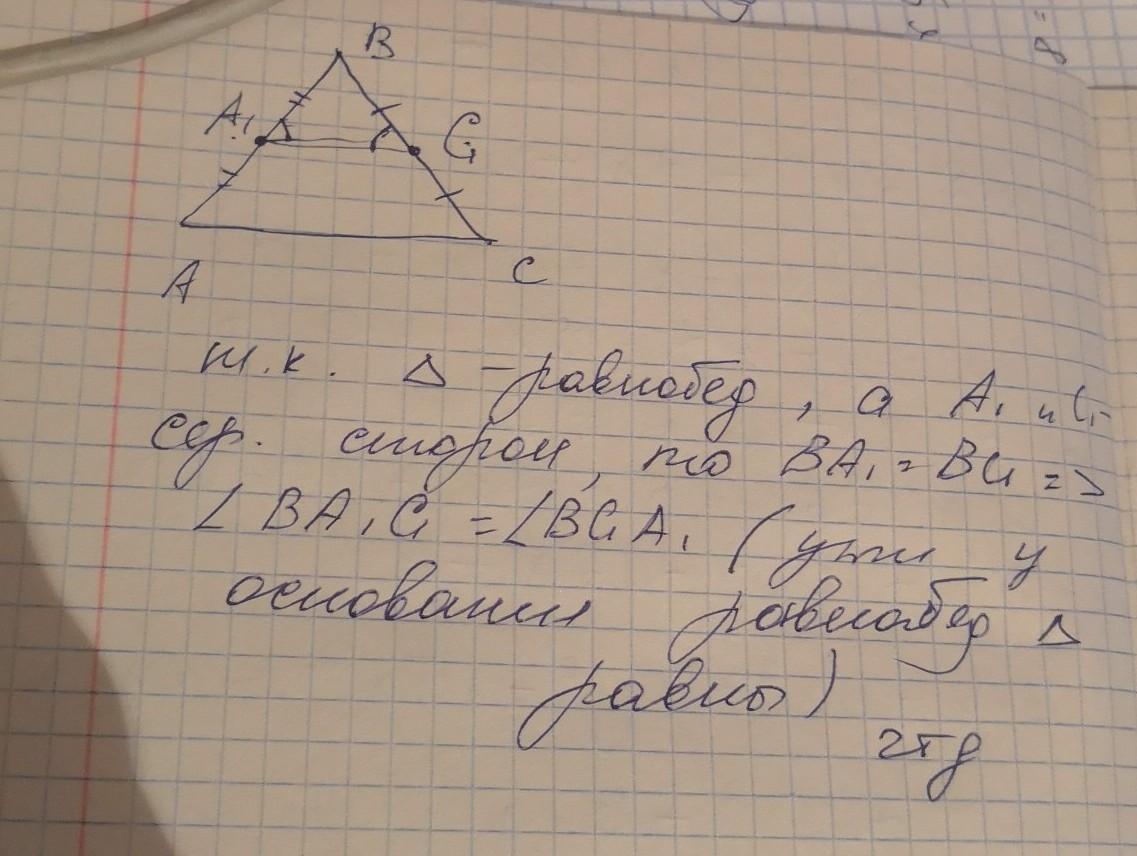 B
A₁
C₁
A
C
т.к. Δ - равнобед, а A₁ и C₁ -
сер. сторон, то BA₁ = BC₁ =>
∠BA₁C₁ = ∠BC₁A₁ (углы у
основания равнобед Δ
равны)
чтд